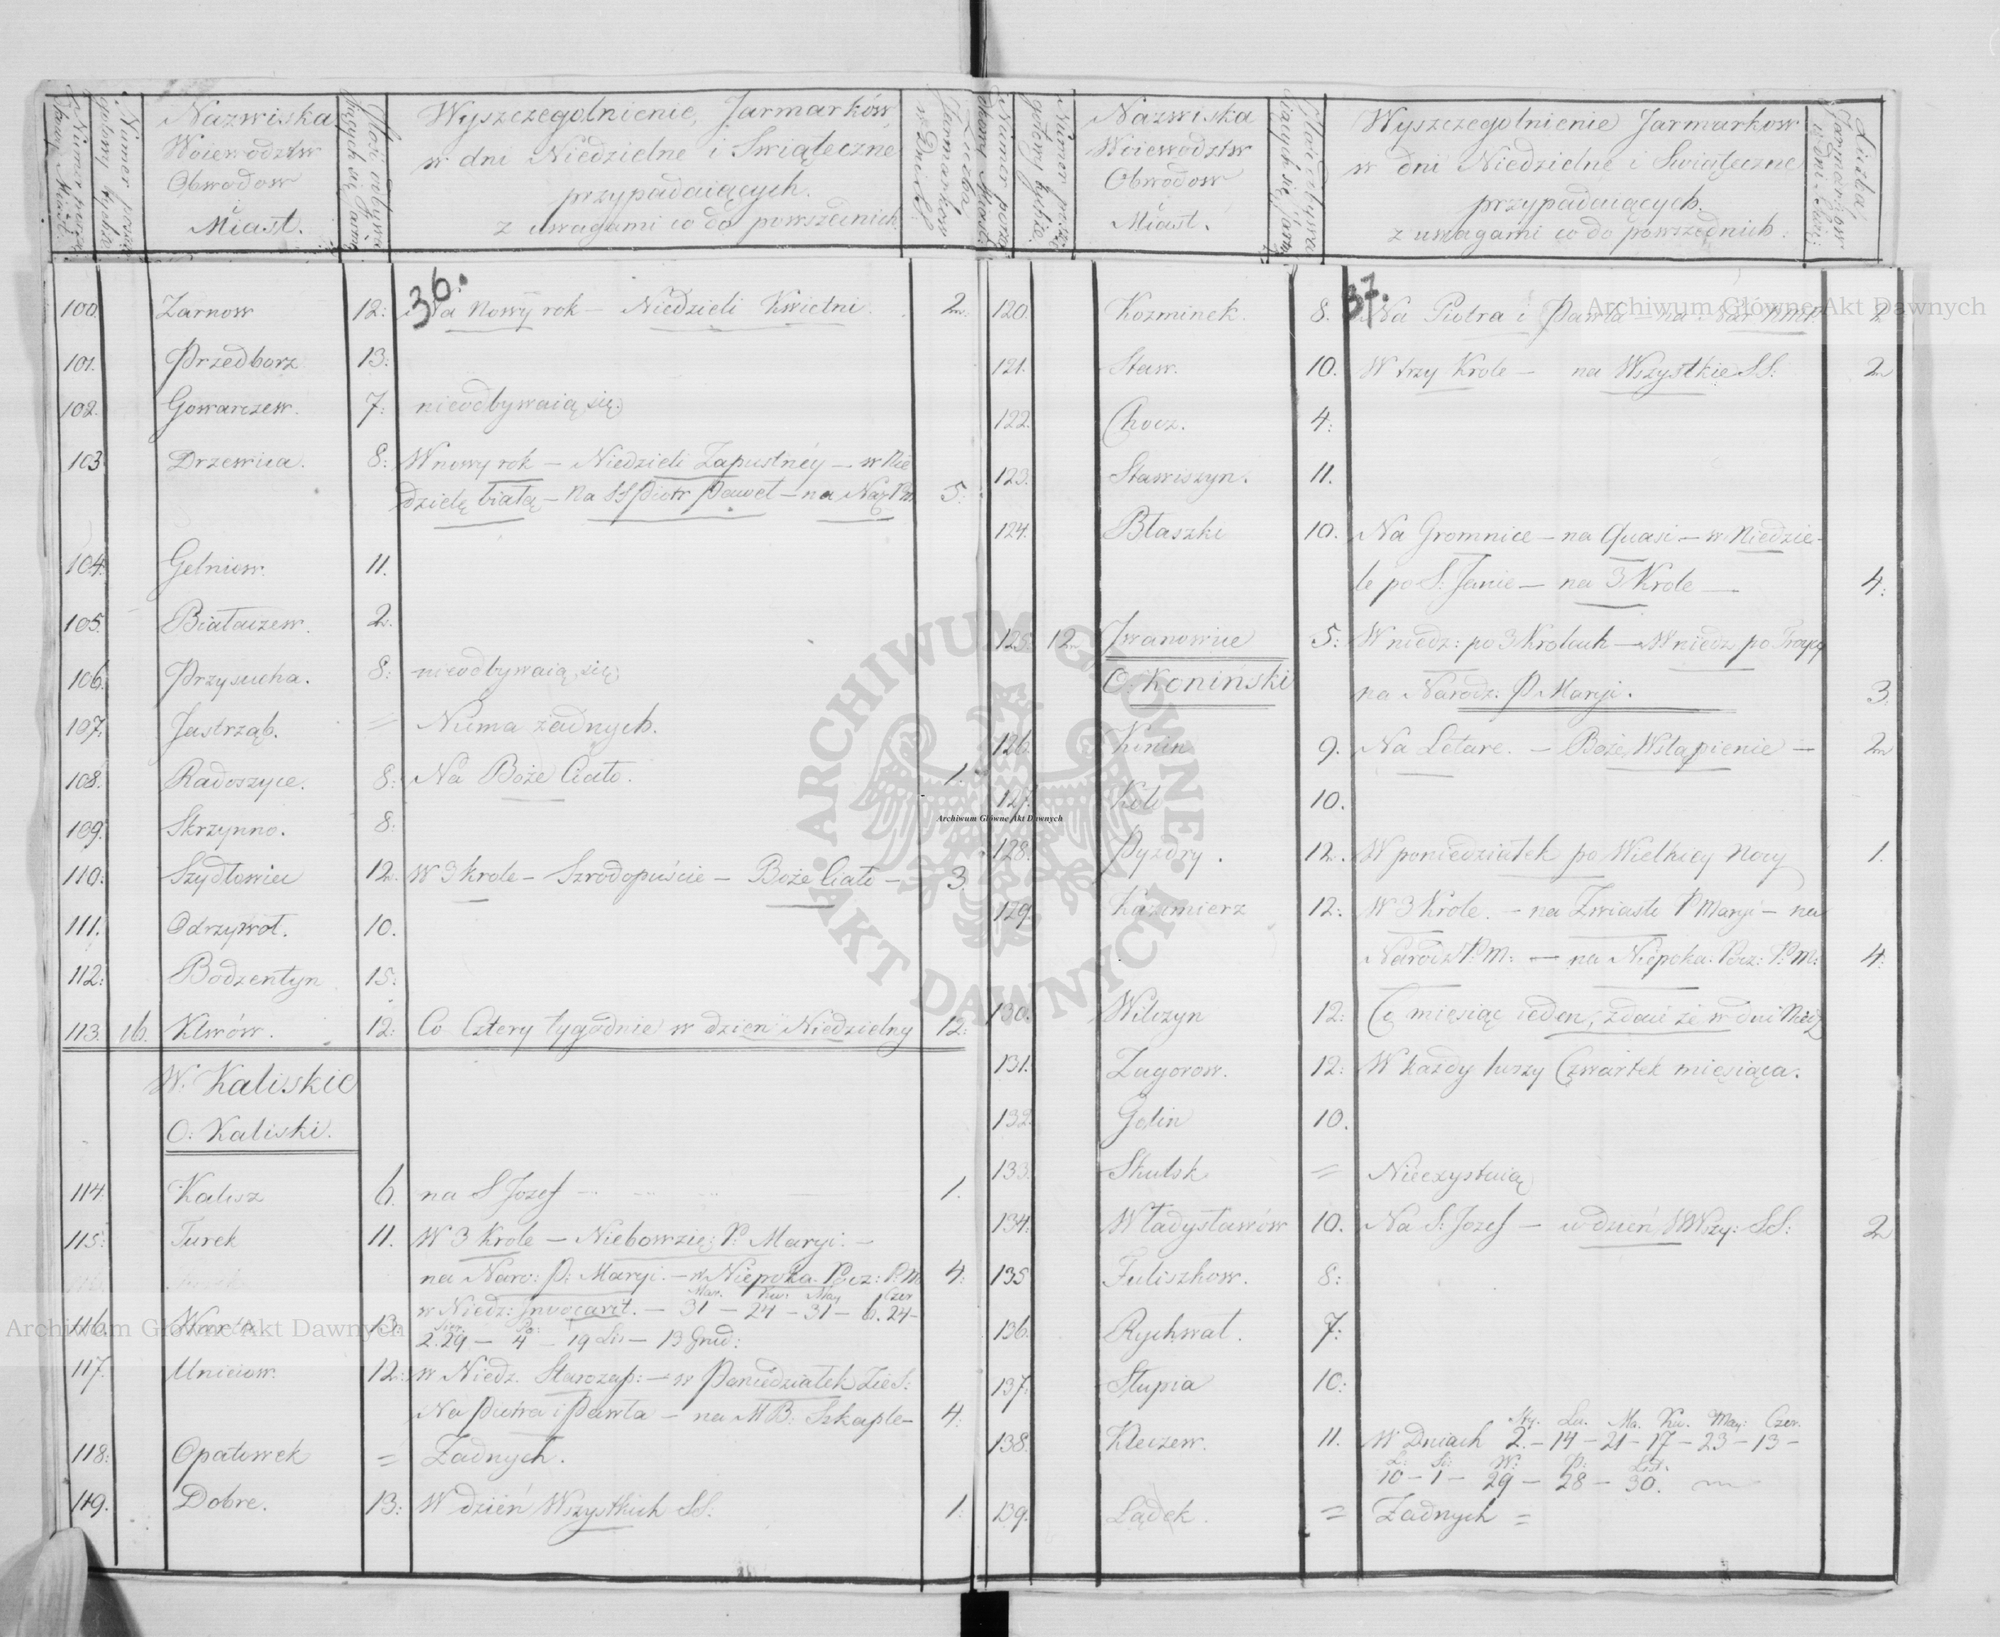 Nazwiska
Woiewodztw
Obwodow
i
Miast.
Wyszczegolnienie Jarmarków
w dni Niedzielne i Swiąteczne
przypadaiących.
z uwagami co do powszednich
36.
100. Żarnow 12: Na Nowy rok – Niedzieli Kwietni. 2
101. Przedborz 13:
102. Gowarczew. 7: nieodbywaią się.
103 Drzewica. 8: W nowy rok – Niedzieli Zapustnéy – w Nie
dzielę białą – Na SS Piotr Paweł – na Naz. Pm 5:
104. Gelniow. 11.
105. Białaczew. 2.
106. Przysucha. 8: nieodbywaią się
107. Jastrząb. = Niéma żadnych.
108. Radoszyce. 8: Na Boże Ciało. 1.
109. Skrzynno. 8:
110. Szydłowiec 12. W 3 krole – Szrodopuście – Boże Ciało – 3
111. Odrzywoł. 10.
112. Bodzentyn 15:
113. 16. Klwów. 12: Co Cztery tygodnie w dzień Niedzielny 12:
W. Kaliskie
O: Kaliski.
114. Kalisz 6. na S Jozef 1.
115. Turek 11. W 3 Krole – Niebowzię: P: Maryi. –
na Naro: P: Maryi. – w Niepoka. Pocz: P.M 4:
Mar. Kw. May Czer
116. Warta 13. w Niedz: Invocavit. – 31 – 24 – 31 – 6. 24 –
2. 29 – 4 – 19 Lis – 13 Grud:
117. Unieiow. 12: w Niedz. Starozap: – w Poniedziałek Zie S:
Na Piotra i Pawła – na MB: Szkaple– 4:
118: Opatowek = Żadnych.
119. Dobre. 13: W dzień Wszystkich SS. 1:
Nazwiska
Woiewodztw
Obwodow
i
Miast.
Wyszczegolnienie Jarmarkow
w dni Niedzielne i Swiąteczne
przypadaiących.
z uwagami co do powszednich:
37.
120. Kozminek. 8. Na Piotra i Pawła – na Nar NMP. 2
121. Staw. 10. W trzy Krole – na Wszystkie SS. 2
122. Chocz. 4:
123. Stawiszyn. 11.
124. Błaszki 10. Na Gromnice – na Quasi – w Niedzie–
le po S: Janie – na 3 Krole – 4:
125. 12 Jwanowice 5: W niedz: po 3 Krolach – W niedz po Troycy
O: Koniński na Narodz: P. Maryi. 3
126. Konin 9. Na Letare. – Boże Wstąpienie – 2
127. Koło 10.
128. Pyzdry. 12. W poniedziałek po Wielkiey Nocy 1.
129. Kazimierz 12: W 3 Krole. – na Zwiast: P Maryi – na
Narodz P. M: – na Niepoka. Pocz: P. M: 4:
130. Wilczyn 12: Co miesiąc ieden, zdaie że w dni Niedz
131. Zagorow. 12: W każdy Czwartek miesiąca.
132. Golin 10.
133. Skulsk = Nieexystuią
134. Władysławów 10. Na S: Jozef – w dzień WWszy: SS: 2
135 Tuliszkow. 8:
136. Rychwał. 7:
137. Słupia 10:
Sty. Lu. Ma. Kw. May: Czer.
138. Kleczew. 11. W Dniach 2. – 14 – 21 – 17 – 23 – 13 –
L: Si: W: P: List.
10 – 1 – 29 – 28 – 30.
139. Lądek. = Żadnych =
Archiwum Główne Akt Dawnych
Archiwum Główne Akt Dawnych
Archiwum Główne Akt Dawnych
ARCHIWUM GŁÓWNE AKT DAWNYCH